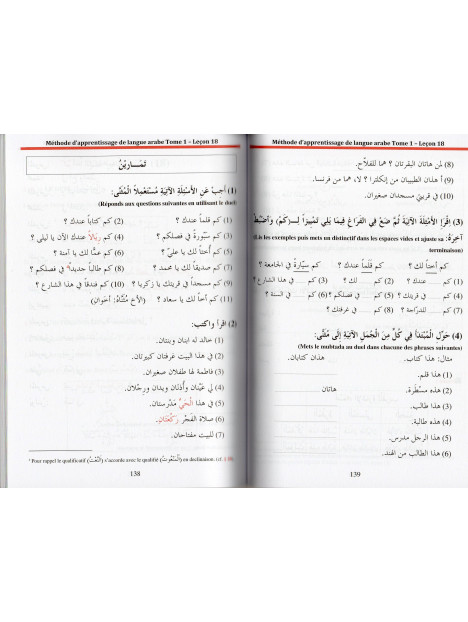 Méthode d'apprentissage de langue arabe Tome 1 – Leçon 18
تَمَــارِيْنُ
(1) أَجِبْ عَنِ الأَسْئِلَةِ الآتِيَةِ مُسْتَعْمِلاً المُثَنَّى:
(Réponds aux questions suivantes en utilisant le duel)
(1) كم قلماً عندك ؟ (2) كم كتاباً عندك ؟
(3) كم سبّورةً في فصلكم ؟ (4) كم رِيَالاً عندك الآن يا ليلى ؟
(5) كم أختاً لك يا عليّ ؟ (6) كم عمًّا لك يا آمنة ؟
(7) كم صديقاً لك يا محمد ؟ (8) كم طالباً جديداً¹ في فصلكم ؟
(9) كم مسجداً في قريتك يا زكريا ؟ (10) كم فندقاً في هذا الشارع ؟
(11) كم أخاً لك يا سعاد ؟ (الأخ مُثَنَّاهُ: أخوان)
(2) اقرأ واكتب:
(1) خالد له ابنان وبنتان.
(2) في هذا البيت غرفتان كبيرتان.
(3) فاطمة لها طفلان صغيران.
(4) لي عَيْنان وأُذنان ويدان ورِجْلان.
(5) في هذا الْحَيِّ مَدْرستان.
(6) صلاة الفَجْرِ رَكْعَتَانِ.
(7) للبيت مفتاحان.
¹ Pour rappel le qualificatif (النَّعْتُ) s'accorde avec le qualifié (الْمَنْعُوتُ) en déclinaison.
138
Méthode d'apprentissage de langue arabe Tome 1 – Leçon 18
(8) لمن هاتان البقرتان ؟ هما للفلّاح.
(9) أ هذان الطبيبان من إنكلترا ؟ لا، هما من فرنسا.
(10) في قريتي مسجدان صغيران.
(3) اِقْرَأِ الأَمْثِلَةَ الآتِيَةَ ثُمَّ ضَعْ فِي الفَرَاغِ فِيمَا يَلِي تَمْيِيزاً لِـ(كَمْ) وَاضْبِطْ
آخِرَهُ: (Lis les exemples puis mets un distinctif dans les espaces vides et ajuste sa
terminaison)
كم أختاً لك ؟ كم قلماً عندك ؟ كم سيّارةً في الجامعة ؟
(1) كم ........ عندك ؟ (2) كم ........ لك ؟ (3) كم ........ في هذا الشارع ؟
(4) كم ........ في غرفتك ؟ (5) كم ........ في فصلكم ؟ (6) كم ........ في السنة ؟
(7) كم ........ للدرّاجة ؟ (8) كم ........ في غرفتك ؟
(4) حَوِّلِ الْمُبْتَدَأَ فِي كُلٍّ مِنَ الْجُمَلِ الآتِيَةِ إِلَى مُثَنًّى:
(Mets le mubtada au duel dans chacune des phrases suivantes)
مثال: هذا كتاب. هذان كتابان.
(1) هذا قلم.
(2) هذه مِسْطَرة. هاتان
(3) هذا طالب.
(4) هذه طالبة.
(5) هذا الرجل مدرس.
(6) هذا الطالب من الهند.
139